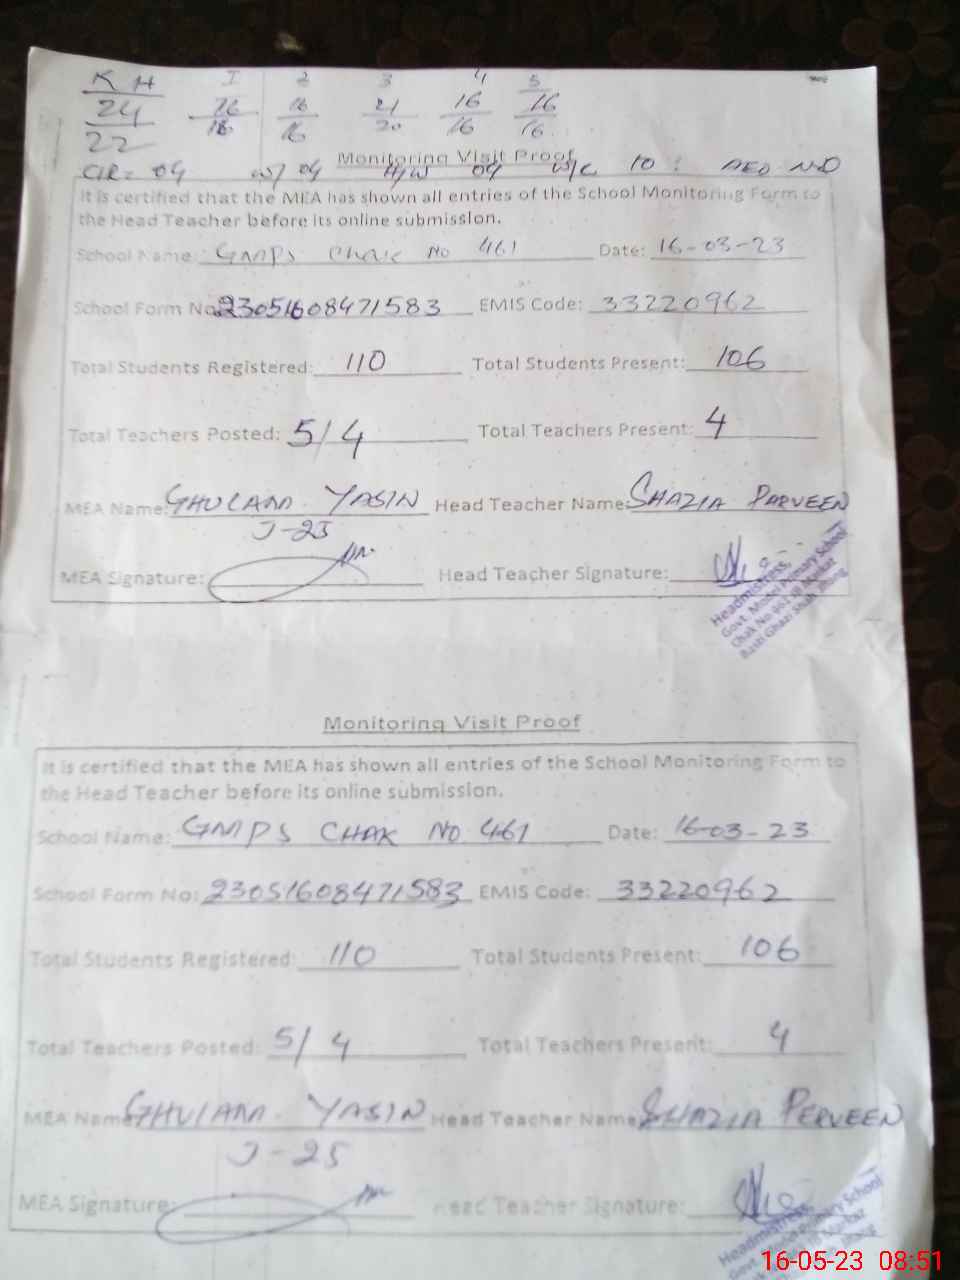 K H I 2 3 4 5
24 16 16 21 16 16
22 16 16 20 16 16
Monitoring Visit Proof
CLR = 04 W/ 04 H/W 04 W/C 10 : AEO NO
It is certified that the MEA has shown all entries of the School Monitoring Form to
the Head Teacher before its online submission.
School Name: GMPS Chak No 461 Date: 16-03-23
School Form No: 23051608471583 EMIS Code: 33220962
Total Students Registered: 110 Total Students Present: 106
Total Teachers Posted: 5/4 Total Teachers Present: 4
MEA Name: GHULAM YASIN Head Teacher Name: SHAZIA PARVEEN
J-25
MEA Signature: Head Teacher Signature:
Headmistress,
Govt. Model Primary School
Chak No 461 JB Markaz
Basti Ghazi Shah Jhang
Monitoring Visit Proof
It is certified that the MEA has shown all entries of the School Monitoring Form to
the Head Teacher before its online submission.
School Name: GMPS CHAK NO 461 Date: 16-03-23
School Form No: 23051608471583 EMIS Code: 33220962
Total Students Registered: 110 Total Students Present: 106
Total Teachers Posted: 5/4 Total Teachers Present: 4
MEA Name: GHULAM YASIN Head Teacher Name: SHAZIA PERVEEN
J-25
MEA Signature: Head Teacher Signature:
Headmistress,
Govt. Model Primary School
16-05-23 08:51